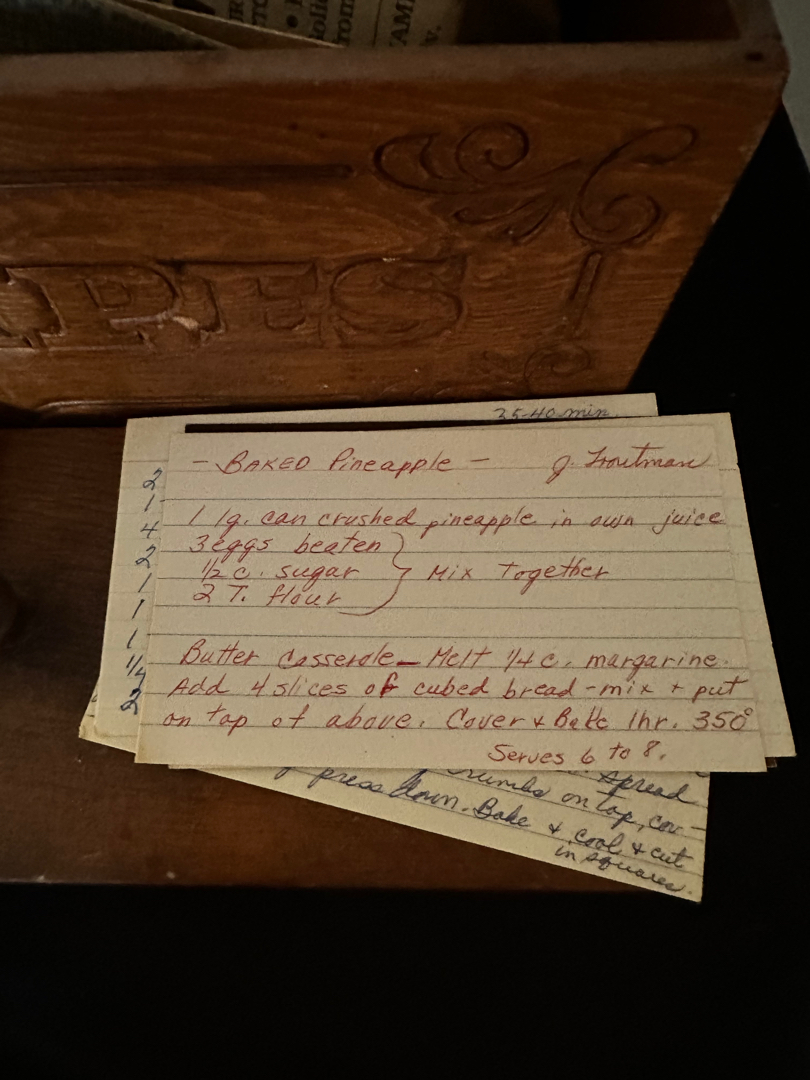 RES
35-40 min.
- BAKED Pineapple - J. Troutman
1 lg. can crushed pineapple in own juice
3 eggs beaten
1/2 c. sugar } Mix Together
2 T. flour
Butter Casserole - Melt 1/4 c. margarine.
Add 4 slices of cubed bread - mix + put
on top of above. Cover + Bake 1hr. 350°
Serves 6 to 8.
2
1
4
2
1
1
1
1/4
2
Spread
crumbs on top, cov-
press down. Bake & cool & cut
in squares.